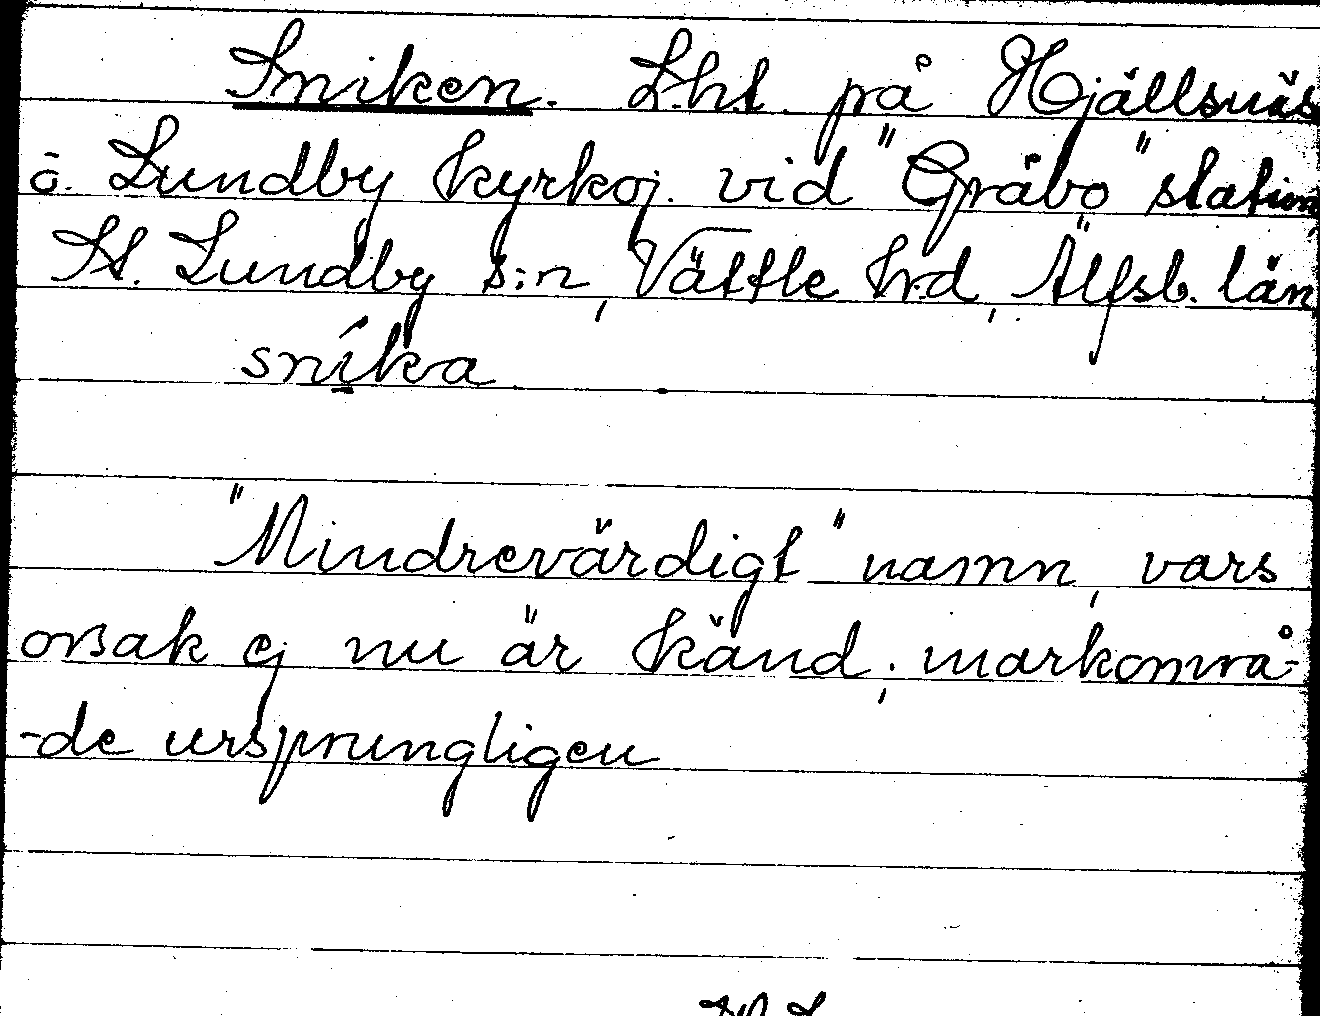 Sniken. L.h.t. på Hjällsnäs
ö. Lundby kyrkoj. vid "Gråbo" station,
St. Lundby s:n, Vättle hrd, Älfsb. län
sníka
"Mindrevärdigt" namn, vars
orsak ej nu är känd; markområ-
-de ursprungligen